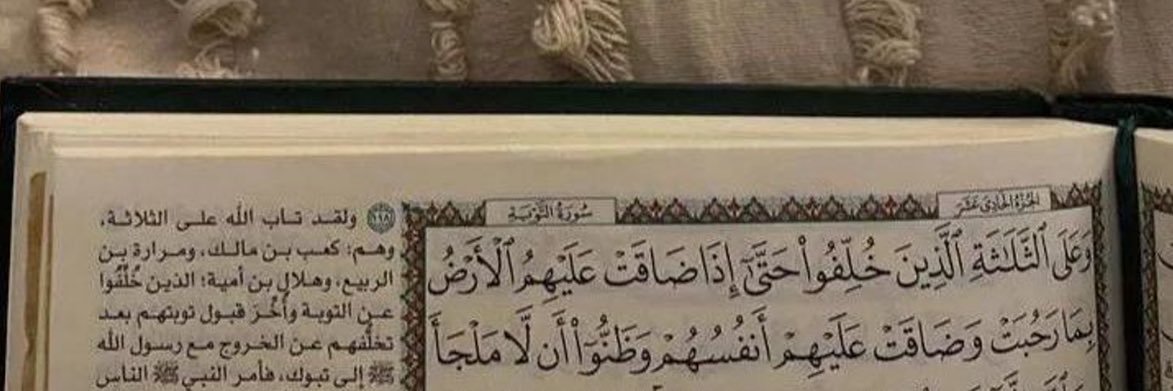 الجزء الحادي عشر
سورة التوبة
وَعَلَى ٱلثَّلَٰثَةِ ٱلَّذِينَ خُلِّفُوا۟ حَتَّىٰٓ إِذَا ضَاقَتْ عَلَيْهِمُ ٱلْأَرْضُ
بِمَا رَحُبَتْ وَضَاقَتْ عَلَيْهِمْ أَنفُسُهُمْ وَظَنُّوٓا۟ أَن لَّا مَلْجَأَ
١١٨ ولقد تاب الله على الثلاثة،
وهم: كعب بن مالك، ومرارة بن
الربيع، وهلال بن أمية؛ الذين خُلِّفُوا
عن التوبة وأُخِّرَ قبول توبتهم بعد
تخلُّفهم عن الخروج مع رسول الله
ﷺ إلى تبوك، فأمر النبي ﷺ الناس